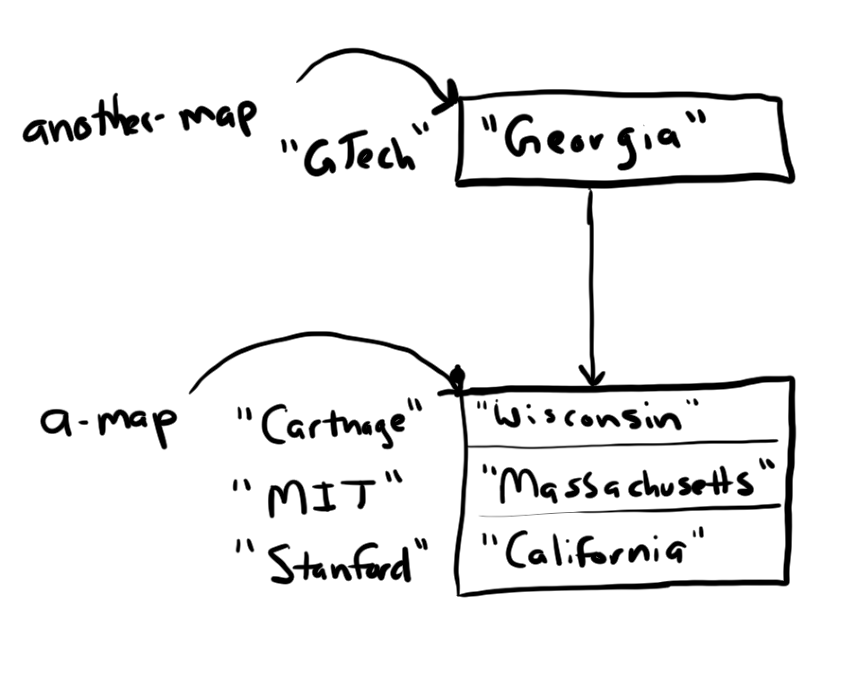 another-map
"GTech" "Georgia"
a-map "Carthage" "Wisconsin"
"MIT" "Massachusetts"
"Stanford" "California"